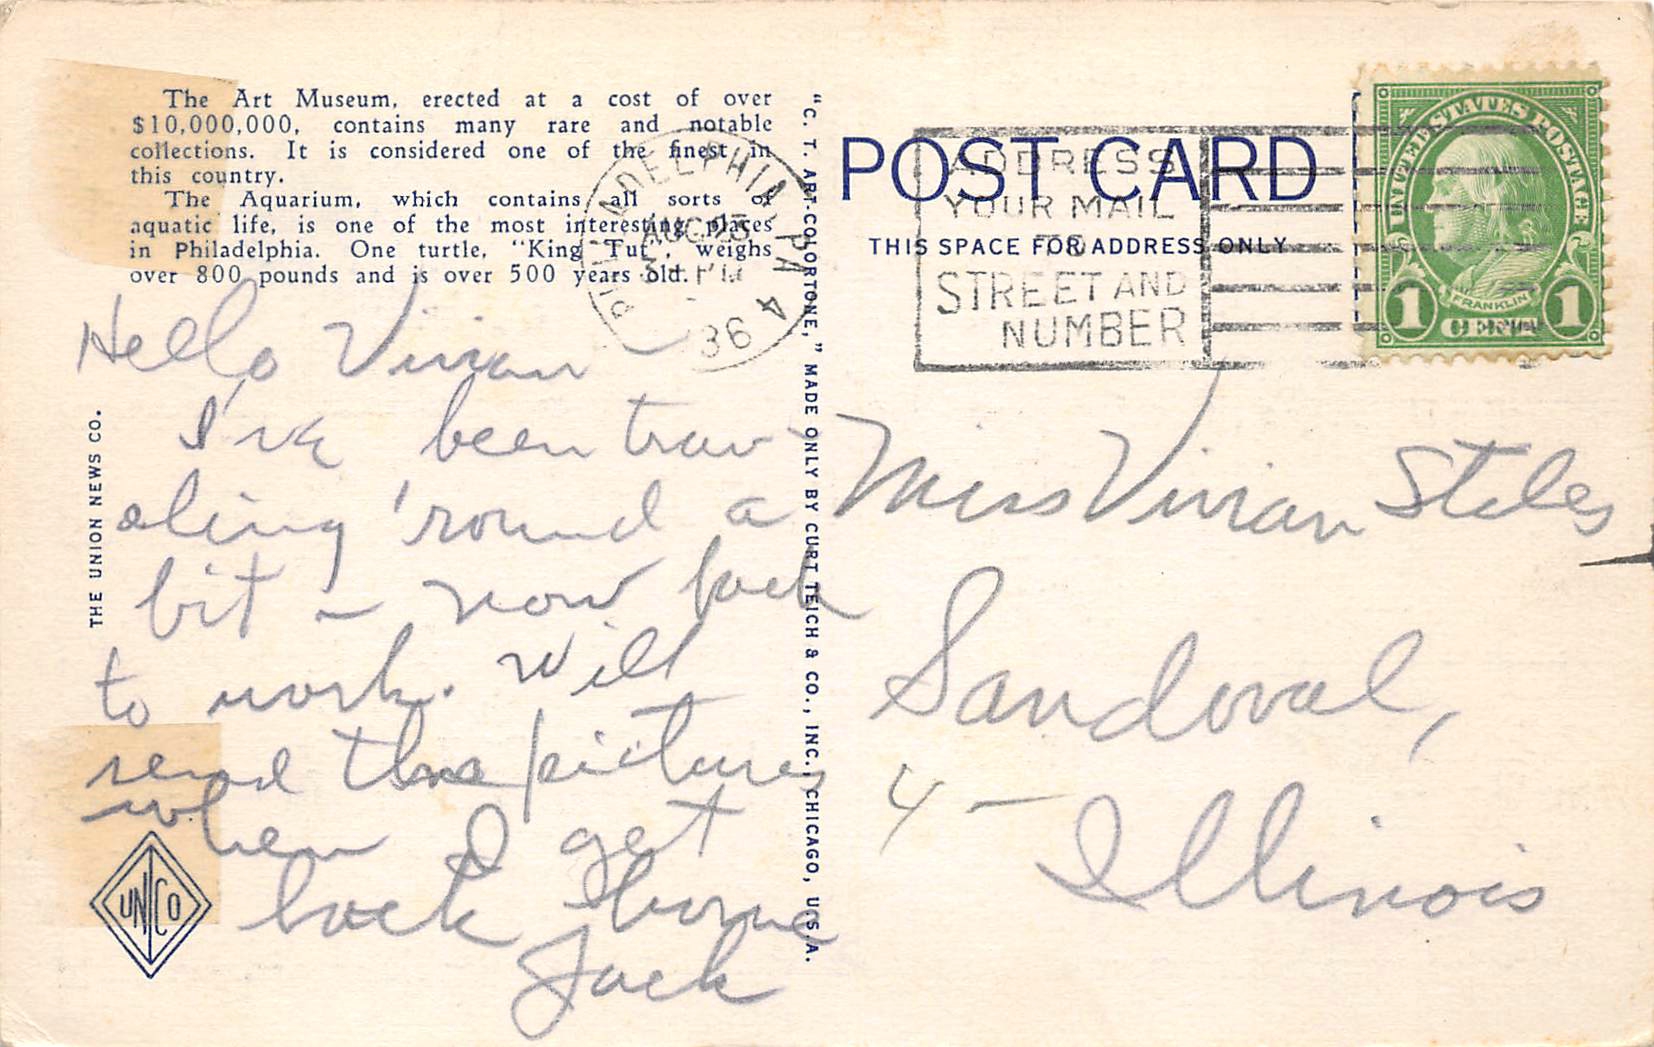 The Art Museum, erected at a cost of over
$10,000,000, contains many rare and notable
collections. It is considered one of the finest in
this country.
The Aquarium, which contains all sorts of
aquatic life, is one of the most interesting places
in Philadelphia. One turtle, "King Tut", weighs
over 800 pounds and is over 500 years old.
THE UNION NEWS CO.
Hello Vivian
I've been trav
eling 'round a
bit – now back
to work. Will
send those pictures
when I get
back home
Jack
UNICO
"C. T. ART-COLORTONE," MADE ONLY BY CURT TEICH & CO., INC., CHICAGO, U.S.A.
PHILADELPHIA, PA
AUG 25
PM
36
4
POST CARD
THIS SPACE FOR ADDRESS ONLY
ADDRESS
YOUR MAIL
TO
STREET AND
NUMBER
UNITED STATES POSTAGE
FRANKLIN
1 CENT 1
Miss Vivian Stiles
Sandoval,
4 –
Illinois